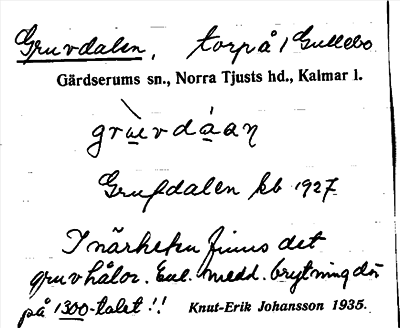 Gruvdalen, torp å / Gullebo
Gärdserums sn., Norra Tjusts hd., Kalmar l.
grùvdáaɳ
Grufdalen kb 1927
I närheten finns det
gruvhålor. Enl. medd. brytning där
på 1300-talet!!
Knut-Erik Johansson 1935.